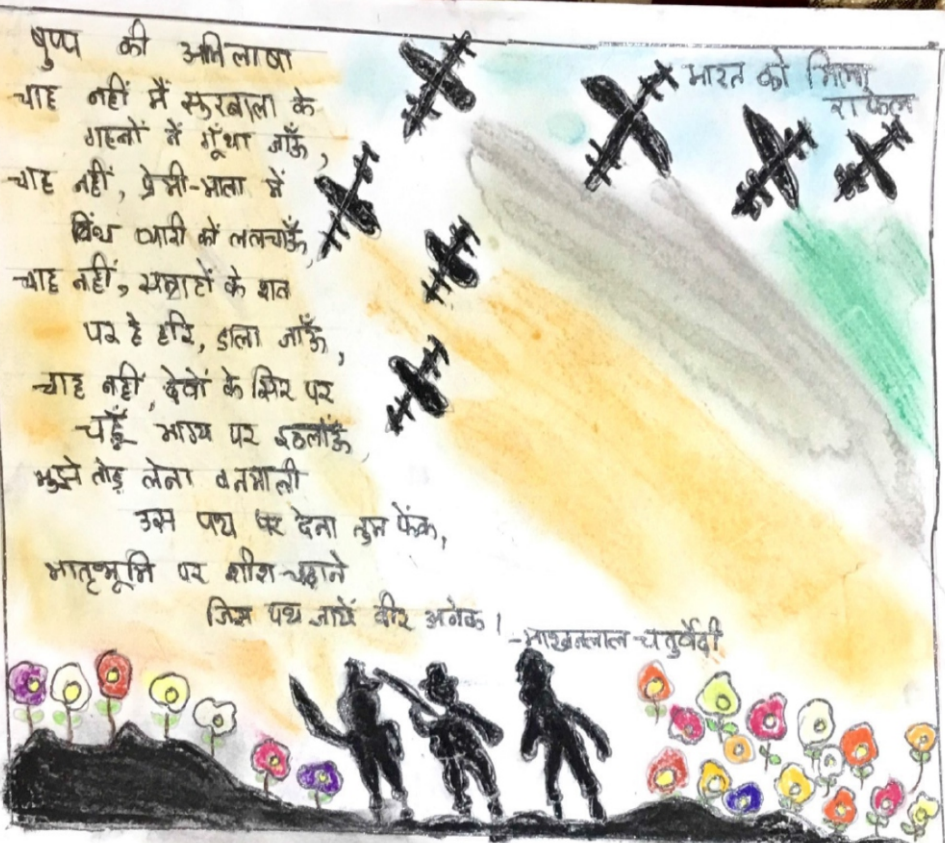 पुष्प की अभिलाषा
चाह नहीं मैं सुरबाला के
गहनों में गूँथा जाँऊ,
चाह नहीं, प्रेमी-माला में
बिंध प्यारी को ललचाऊँ,
चाह नहीं, सम्राटों के शव
पर हे हरि, डाला जाँऊ,
चाह नहीं, देवों के सिर पर
चढूँ भाग्य पर इठलाँऊ
मुझे तोड़ लेना वनमाली
उस पथ पर देना तुम फेंक,
मातृभूमि पर शीश चढ़ाने
जिस पथ जायें वीर अनेक।
-माखनलाल चतुर्वेदी
भारत को मिला
राफेल